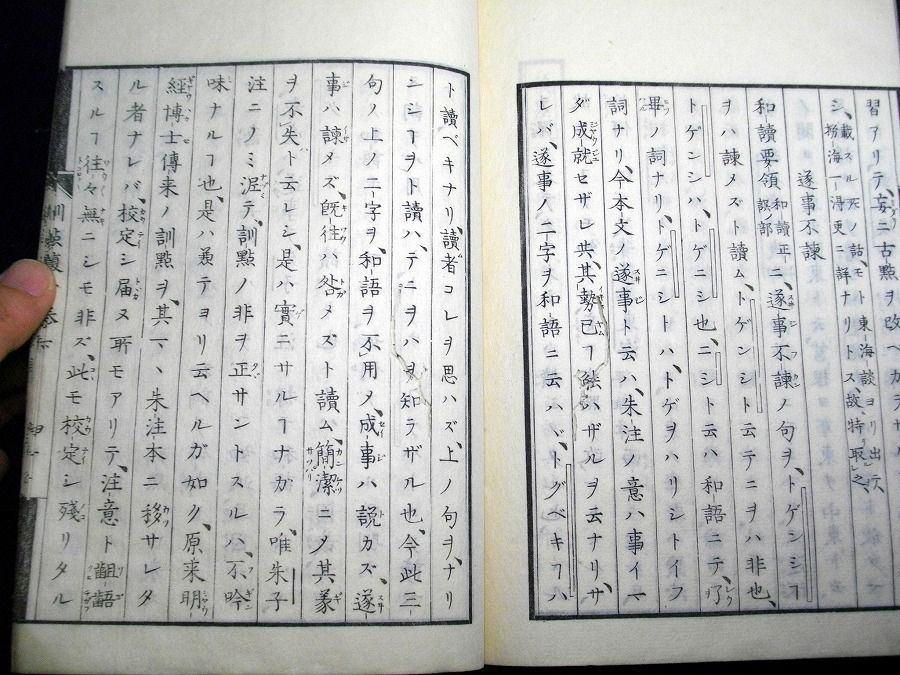 習アリテ、妄ニ古點ヲ改ベカラザル
シ、載スル死ノ詁モト東海談ヨリ出ヅ、
栁海一得更ニ詳ナリトス、故特取之
遂事不諫
和讀要領 和讀正誤ノ部 ニ、遂事不諫ノ句ヲ、トゲンシヿ
ヲハ諫メズト讀ム、トゲンシト云テニヲハ非也、
トゲンシハ、トゲニシ也、ニシト云ハ和語ニテ、乃
畢ノ詞ナリ、トゲニシトハ、トゲヲハリシトイフ
詞ナリ、今本文ノ遂事ト云ハ、朱注ノ意ハ事イマ
ダ成就セザレ共、其勢已ヿ能ハザルヲ云ナリ、サ
レバ、遂事ノ二字ヲ和語ニ云ハヾ、トグベキヿハ
ト讀ベキナリ、讀者コレヲ思ハズ、上ノ句ヲ、ナリ
ニシヿヲト讀ハ、テニヲハヲ知ラザル也、今此三
句ノ上ノ二字ヲ、和語ヲ不用メ、成事ハ説カズ、遂
事ハ諫メズ、既往ハ咎メズト讀ム、簡潔ニメ其義
ヲ不失ト云レシ、是ハ實ニサルヿナガラ、唯朱子
注ニノミ泥テ、訓點ノ非ヲ正サントスルハ、不吟
味ナルヿ也、是ハ兼テヨリ云ヘルガ如ク、原来明
經博士傳来ノ訓點ヲ、其マヽ朱注本ニ移サレタ
ル者ナレバ、校定シ届ヌ所モアリテ、注意ト齟齬
スルヿ往々無ニシモ非ズ、此モ校定シ殘リタル